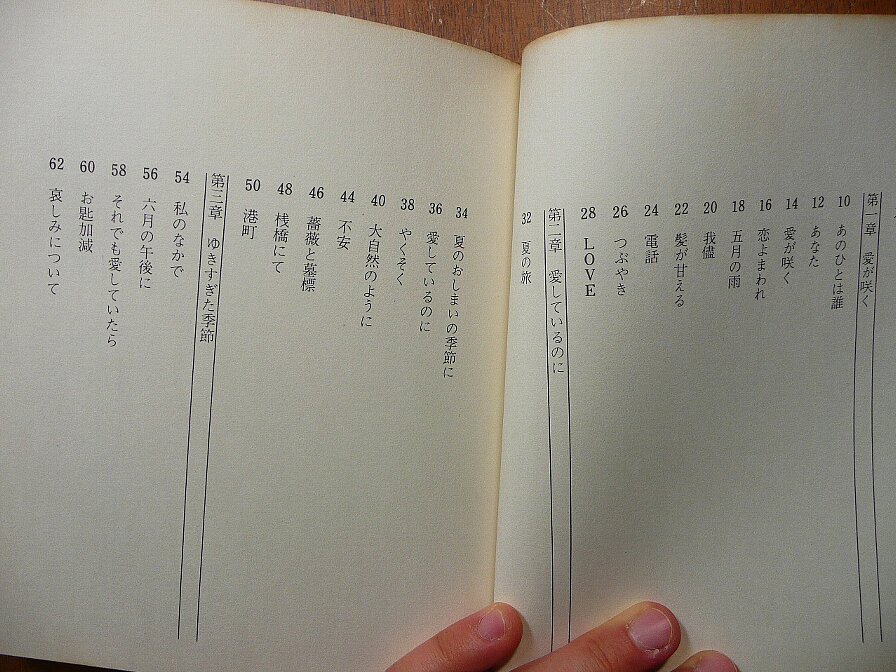 第一章　愛が咲く
10　あのひとは誰
12　あなた
14　愛が咲く
16　恋よまわれ
18　五月の雨
20　我儘
22　髪が甘える
24　電話
26　つぶやき
28　LOVE
第二章　愛しているのに
32　夏の旅
34　夏のおしまいの季節に
36　愛しているのに
38　やくそく
40　大自然のように
44　不安
46　薔薇と墓標
48　桟橋にて
50　港町
第三章　ゆきすぎた季節
54　私のなかで
56　六月の午後に
58　それでも愛していたら
60　お匙加減
62　哀しみについて